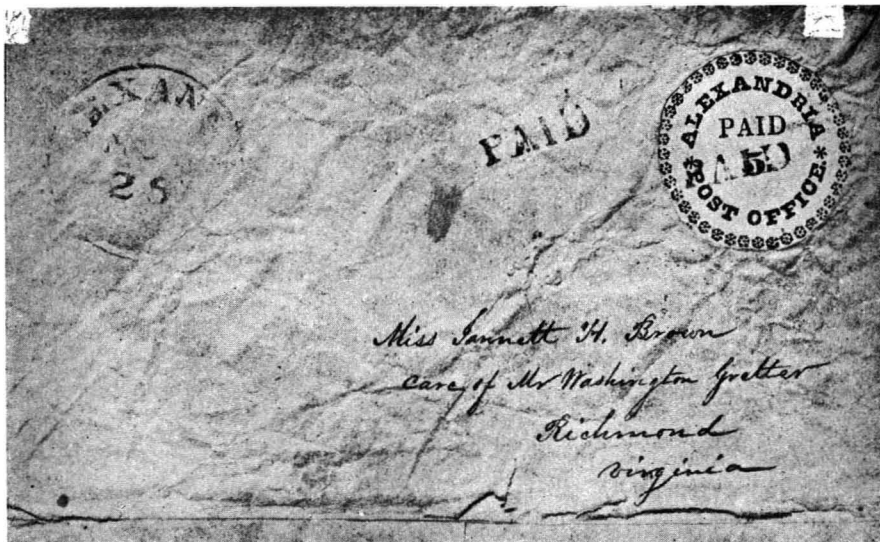 EXAN
25
PAID
ALEXANDRIA
PAID
PAID
5
* POST OFFICE *
Miss Jannett H. Brown
care of Mr Washington Gretter
Richmond
virginia